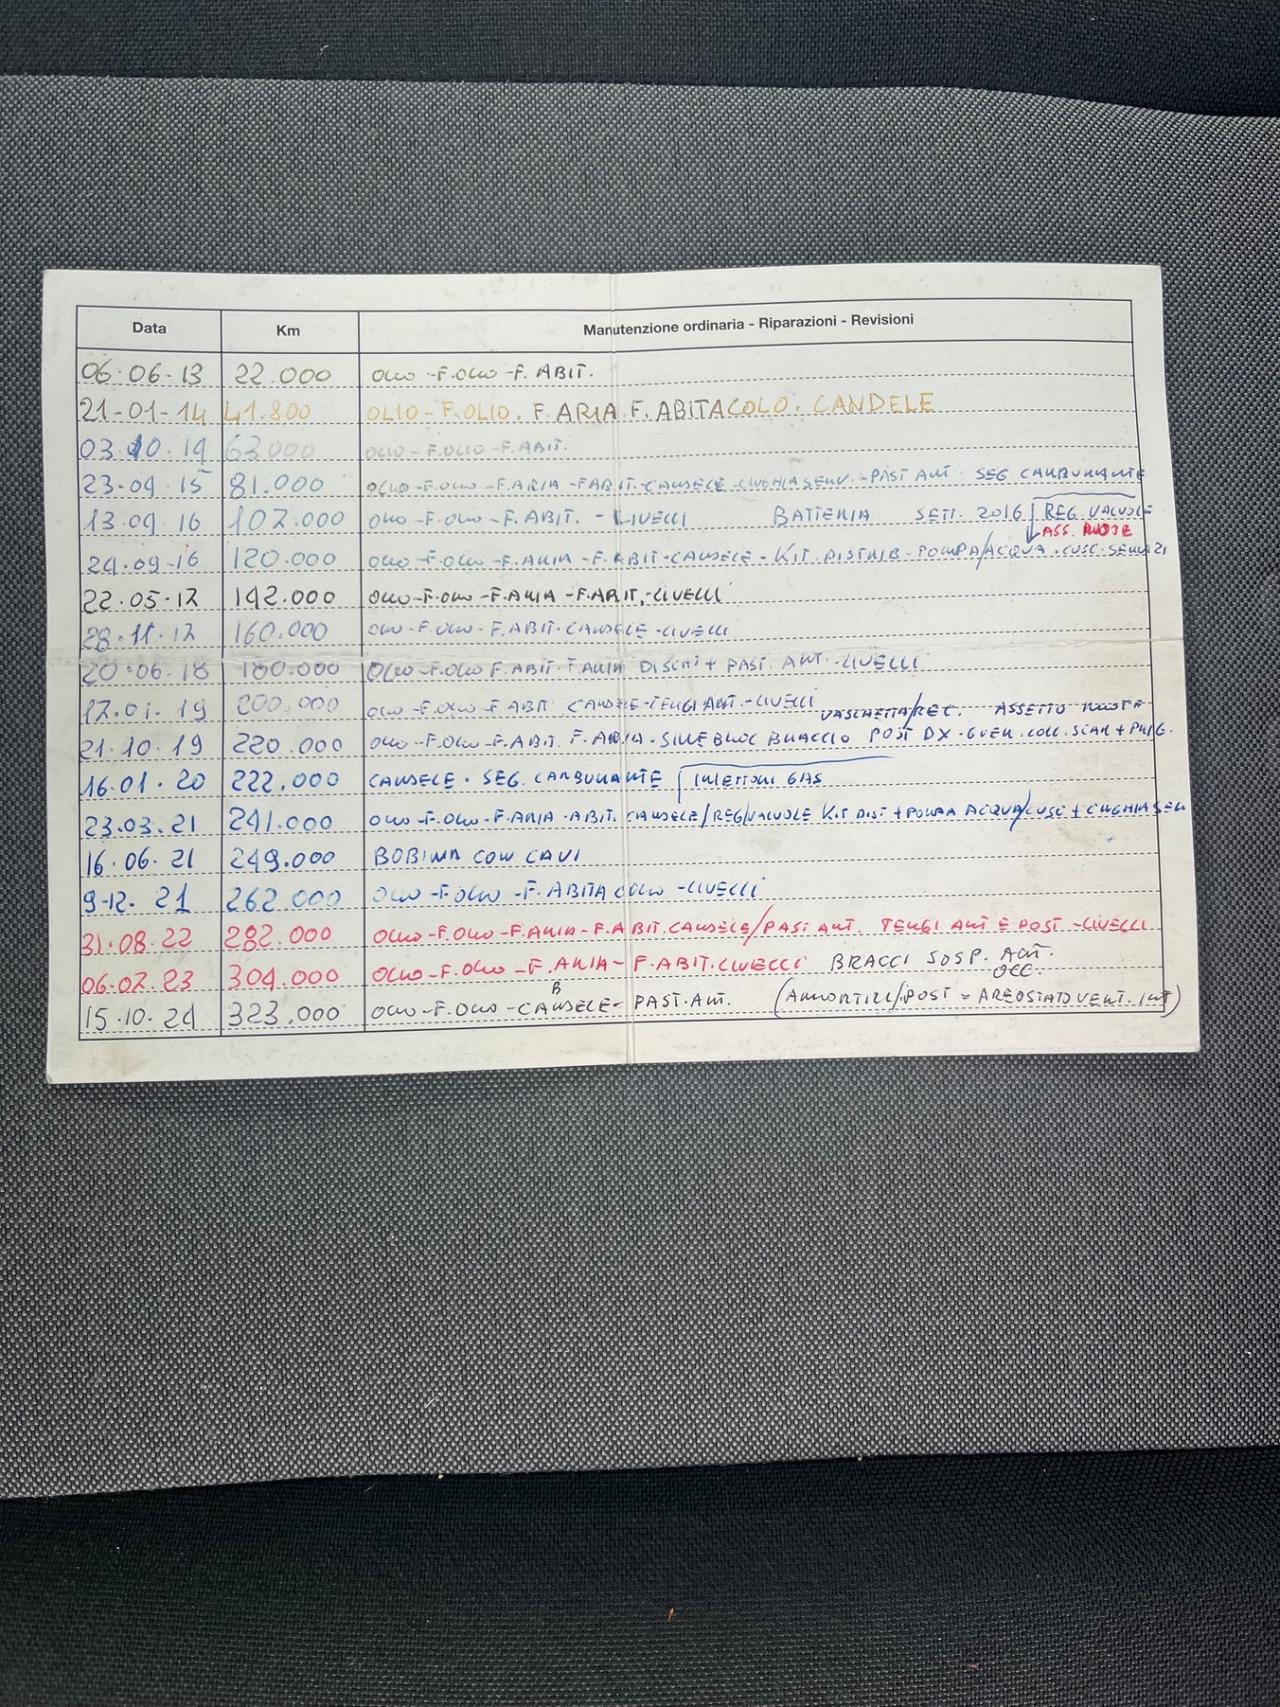 Data Km Manutenzione ordinaria - Riparazioni - Revisioni
06.06-13 22.000 OLIO -F.OLIO -F. ABIT.
21-01-14 41.800 OLIO - F.OLIO. F. ARIA F. ABITACOLO. CANDELE
03.10.14 63000 OLIO - F.OLIO -F.ABIT.
23.04 15 81.000 OLIO -F.OLIO -F.ARIA -F.ABIT.-CANDELE -CINGHIA SERV. -PAST ANT. SEG CARBURANTE
13.04 16 102.000 OLIO -F-OLIO -F. ABIT. - LIVELLI BATTERIA SETT. 2016 REG. VALVOLE
ASS. RUOTE
24.09-16 120.000 OLIO -F.OLIO -F.ARIA -F.ABIT-CANDELE - KIT. DISTRIB - POMPA/ACQUA. CUSC. SERVIZI
22.05-17 142.000 OLIO-F.OLIO -F.ARIA -F.ABIT.-LIVELLI
28.11.17 160.000 OLIO -F.OLIO -F.ABIT-CANDELE -LIVELLI
20.06.18 180.000 OLIO -F.OLIO F.ABIT. F.ARIA DISCHI + PAST. ANT. -LIVELLI
17.01.19 200.000 OLIO -F.OLIO -F.ABIT CANDELE-TERGI ANT.-LIVELLI
VASCHETTA/REC. ASSETTO RUOTE
21.10.19 220.000 OLIO -F.OLIO -F.ABIT. F.ARIA - SILEBLOC BRACCIO POST DX - GUER. COLL. SCAR +
16.01.20 222.000 CANDELE. SEG. CARBURANTE INIETTORI GAS
23.03.21 241.000 OLIO -F.OLIO -F.ARIA -ABIT. CANDELE/REG/VALVOLE KIT DIST + POMPA ACQUA/CUSC + CINGHIA SER
16.06.21 249.000 BOBINA CON CAVI
9-12.21 262.000 OLIO -F.OLIO -F. ABITACOLO -LIVELLI
31.08.22 282.000 OLIO-F.OLIO -F.ARIA - F.ABIT.CANDELE/PAST ANT. TERGI ANT E POST -LIVELLI
06.07.23 304.000 OLIO -F.OLIO -F.ARIA - F.ABIT.LIVELLI BRACCI SOSP. ANT.
15.10.24 323.000 OLIO -F.OLIO -CANDELE- PAST. ANT. (AMMORTIZZ/POST = AREOSTATO VENT. INT)